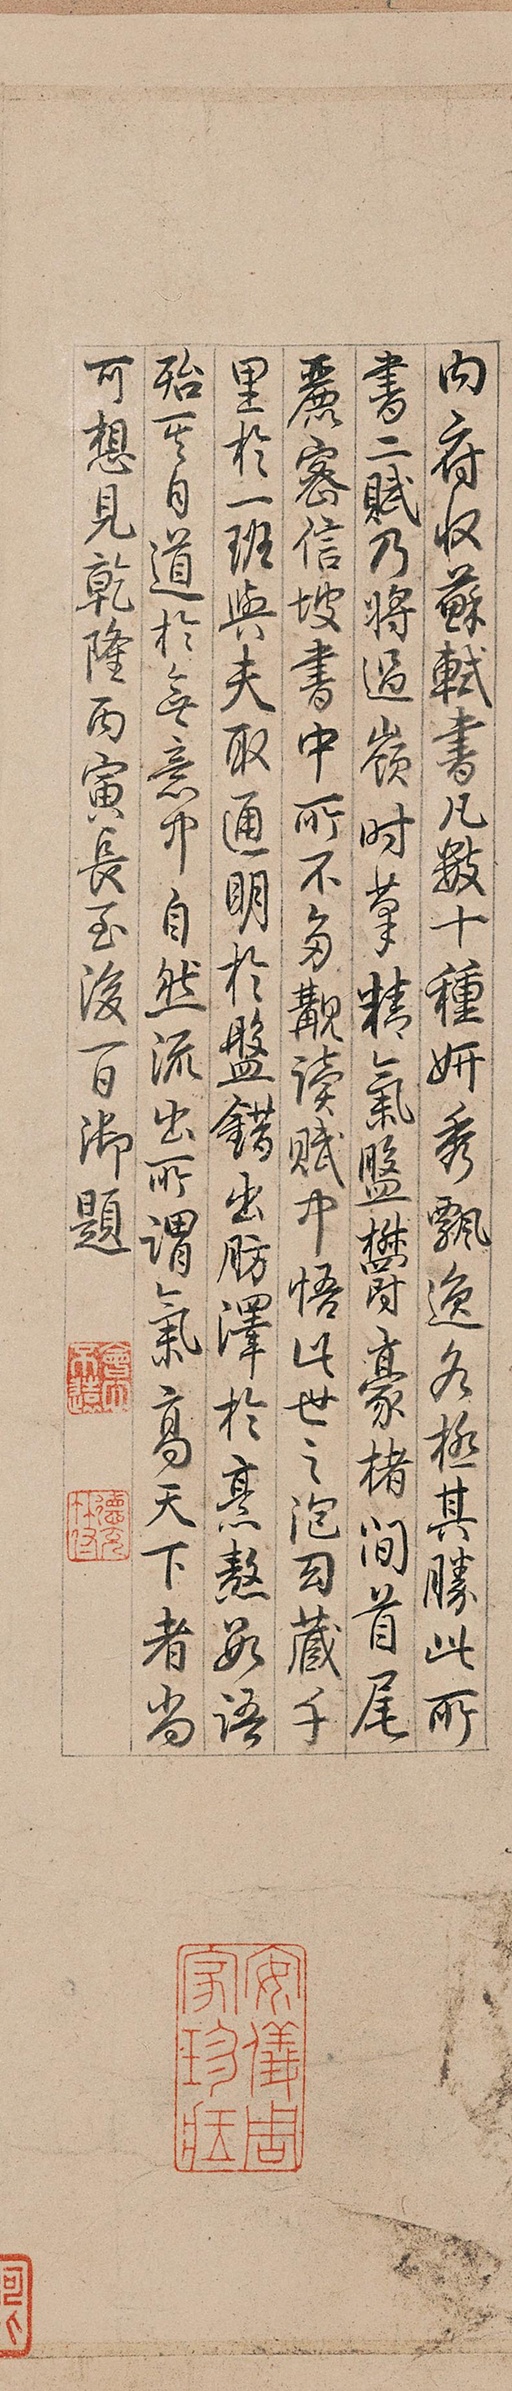 內府收蘇軾書凡數十種妍秀飄逸各極其勝此所
書二賦乃將過嶺時筆精氣盤欝豪楮間首尾
麗密信坡書中所不多觀讀賦中悟此世之泡幻藏千
里於一班與夫取通明於盤錯出肪澤於烹熬數語
殆一一自道於無意中自然流出所謂氣高天下者尚
可想見乾隆丙寅長至後一日御題
會心不遠
德充符
安儀周家珍藏